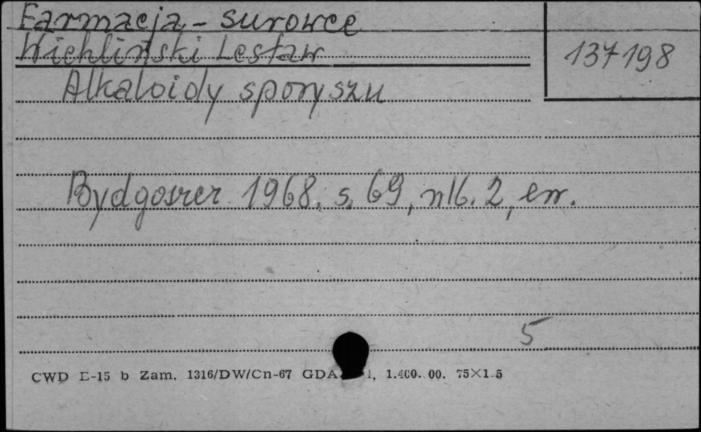 Farmacja - surowce
Wichliński Lesław
137198
Alkaloidy sporyszu
Bydgoszcz 1968. s. 69, nlb. 2, err.
5
CWD E-15 b Zam. 1316/DW/Cn-67 GDA 1.400. 00. 75×1 5